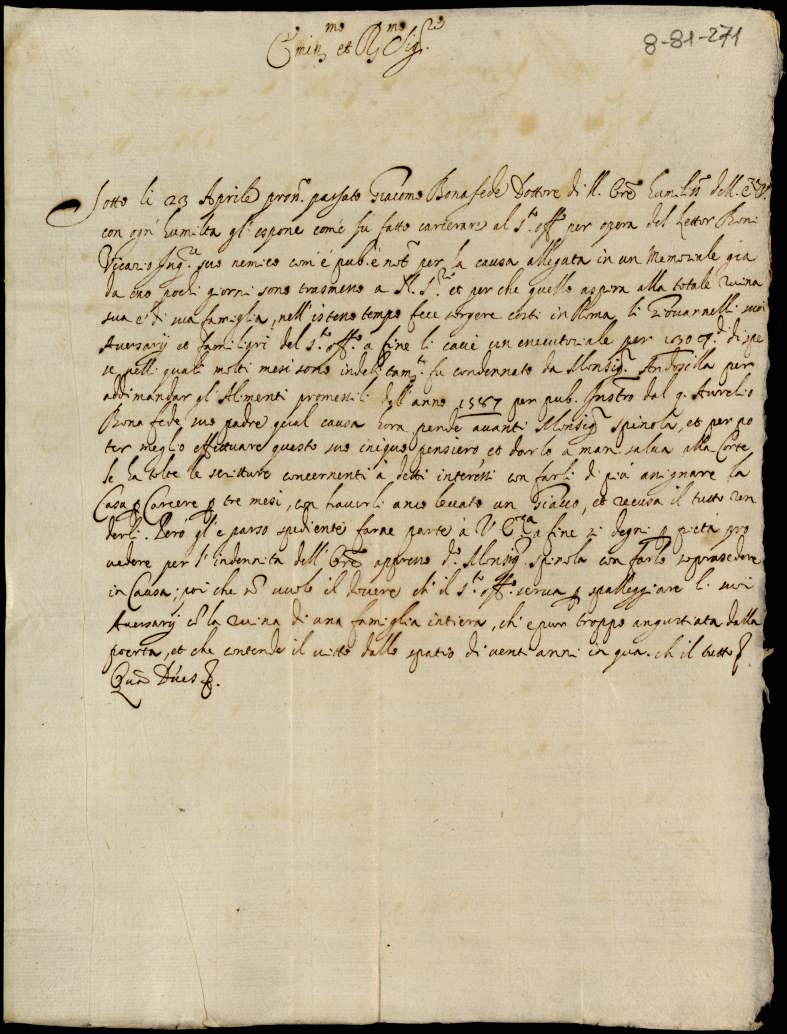 8-81-271
Emin.mo et R.mo Sig.re
Sotto li 23 Aprile pron. passato Giacomo Bonafede Dottore di N. Ore humiliss dell. E. V.
con ogni humilta gl'espone come fu fatto carcerare al S.to off.o per opera del Lettor Boni
Vicario Inq.re suo nemico com'è pub. è not.o per la causa allegata in un Memoriale gia
da esso pochi giorni sono trasmesso a N. S.re et per che quello aspira alla totale ruina
sua e di sua famiglia, nell'istesso tempo fece sorgere certi in Roma, li Giovarnelli suoi
Aversarij et famigliari del S.to off.o a fine li cavi un executoriale per 1030 di spe
se nelli quali molti mesi sono indebitam.te fu condennato da Monsig.r Androsilla per
addimandar gl'Alimenti promessili dell'anno 1587 per pub. Instro dal q. Aurelio
Bona fede suo padre qual causa hora pende avanti Monsig.r Spinola, et per po
ter meglio effettuare questo suo iniquo pensiero et darlo a man salva alla Corte
se ha tolte le scritture concernenti à detti interessi con farli di più assignare la
Casa p Carcere p tre mesi, con haverli anco levato un Giacco, et recusa il tutto ren
derli. Però gl'è parso spediente farne parte à V. E.za a fine si degni p pietà pro
vedere per l'indennita dell'Ore appresso d.o Monsig.r Spinola con farlo soprasedere
in Causa; poi che nõ vuole il dovere ch'il S.to off.o serva p spalleggiare li suoi
Aversarij cõ la ruina di una famiglia intiera, ch'è pur troppo angustiata dalla
povertà, et che contende il vitto dallo spatio di venti anni in qua. ch'il tutto p.
Quã Deus p.